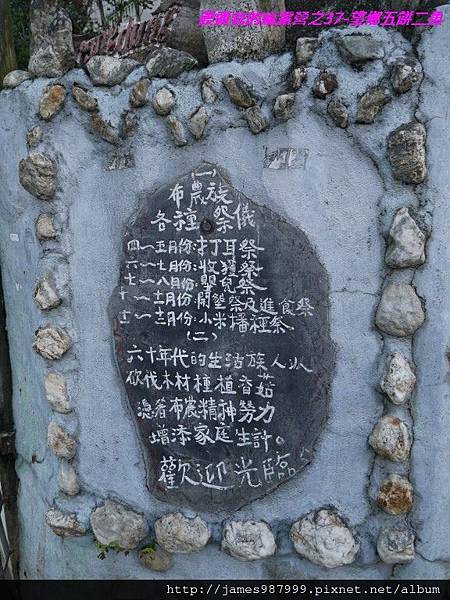 (一)
布農族
各種祭儀
四~五月份:打耳祭
六~七月份:收獲祭
七~八月份:嬰兒祭
十~十一月份:開墾祭及進食祭
十一~十二月份:小米播種祭
(二)
六十年代的生活族人以
砍伐木材種植香菇
憑著布農精神勞力
增添家庭生計。
歡迎光臨
http://james987999.pixnet.net/album